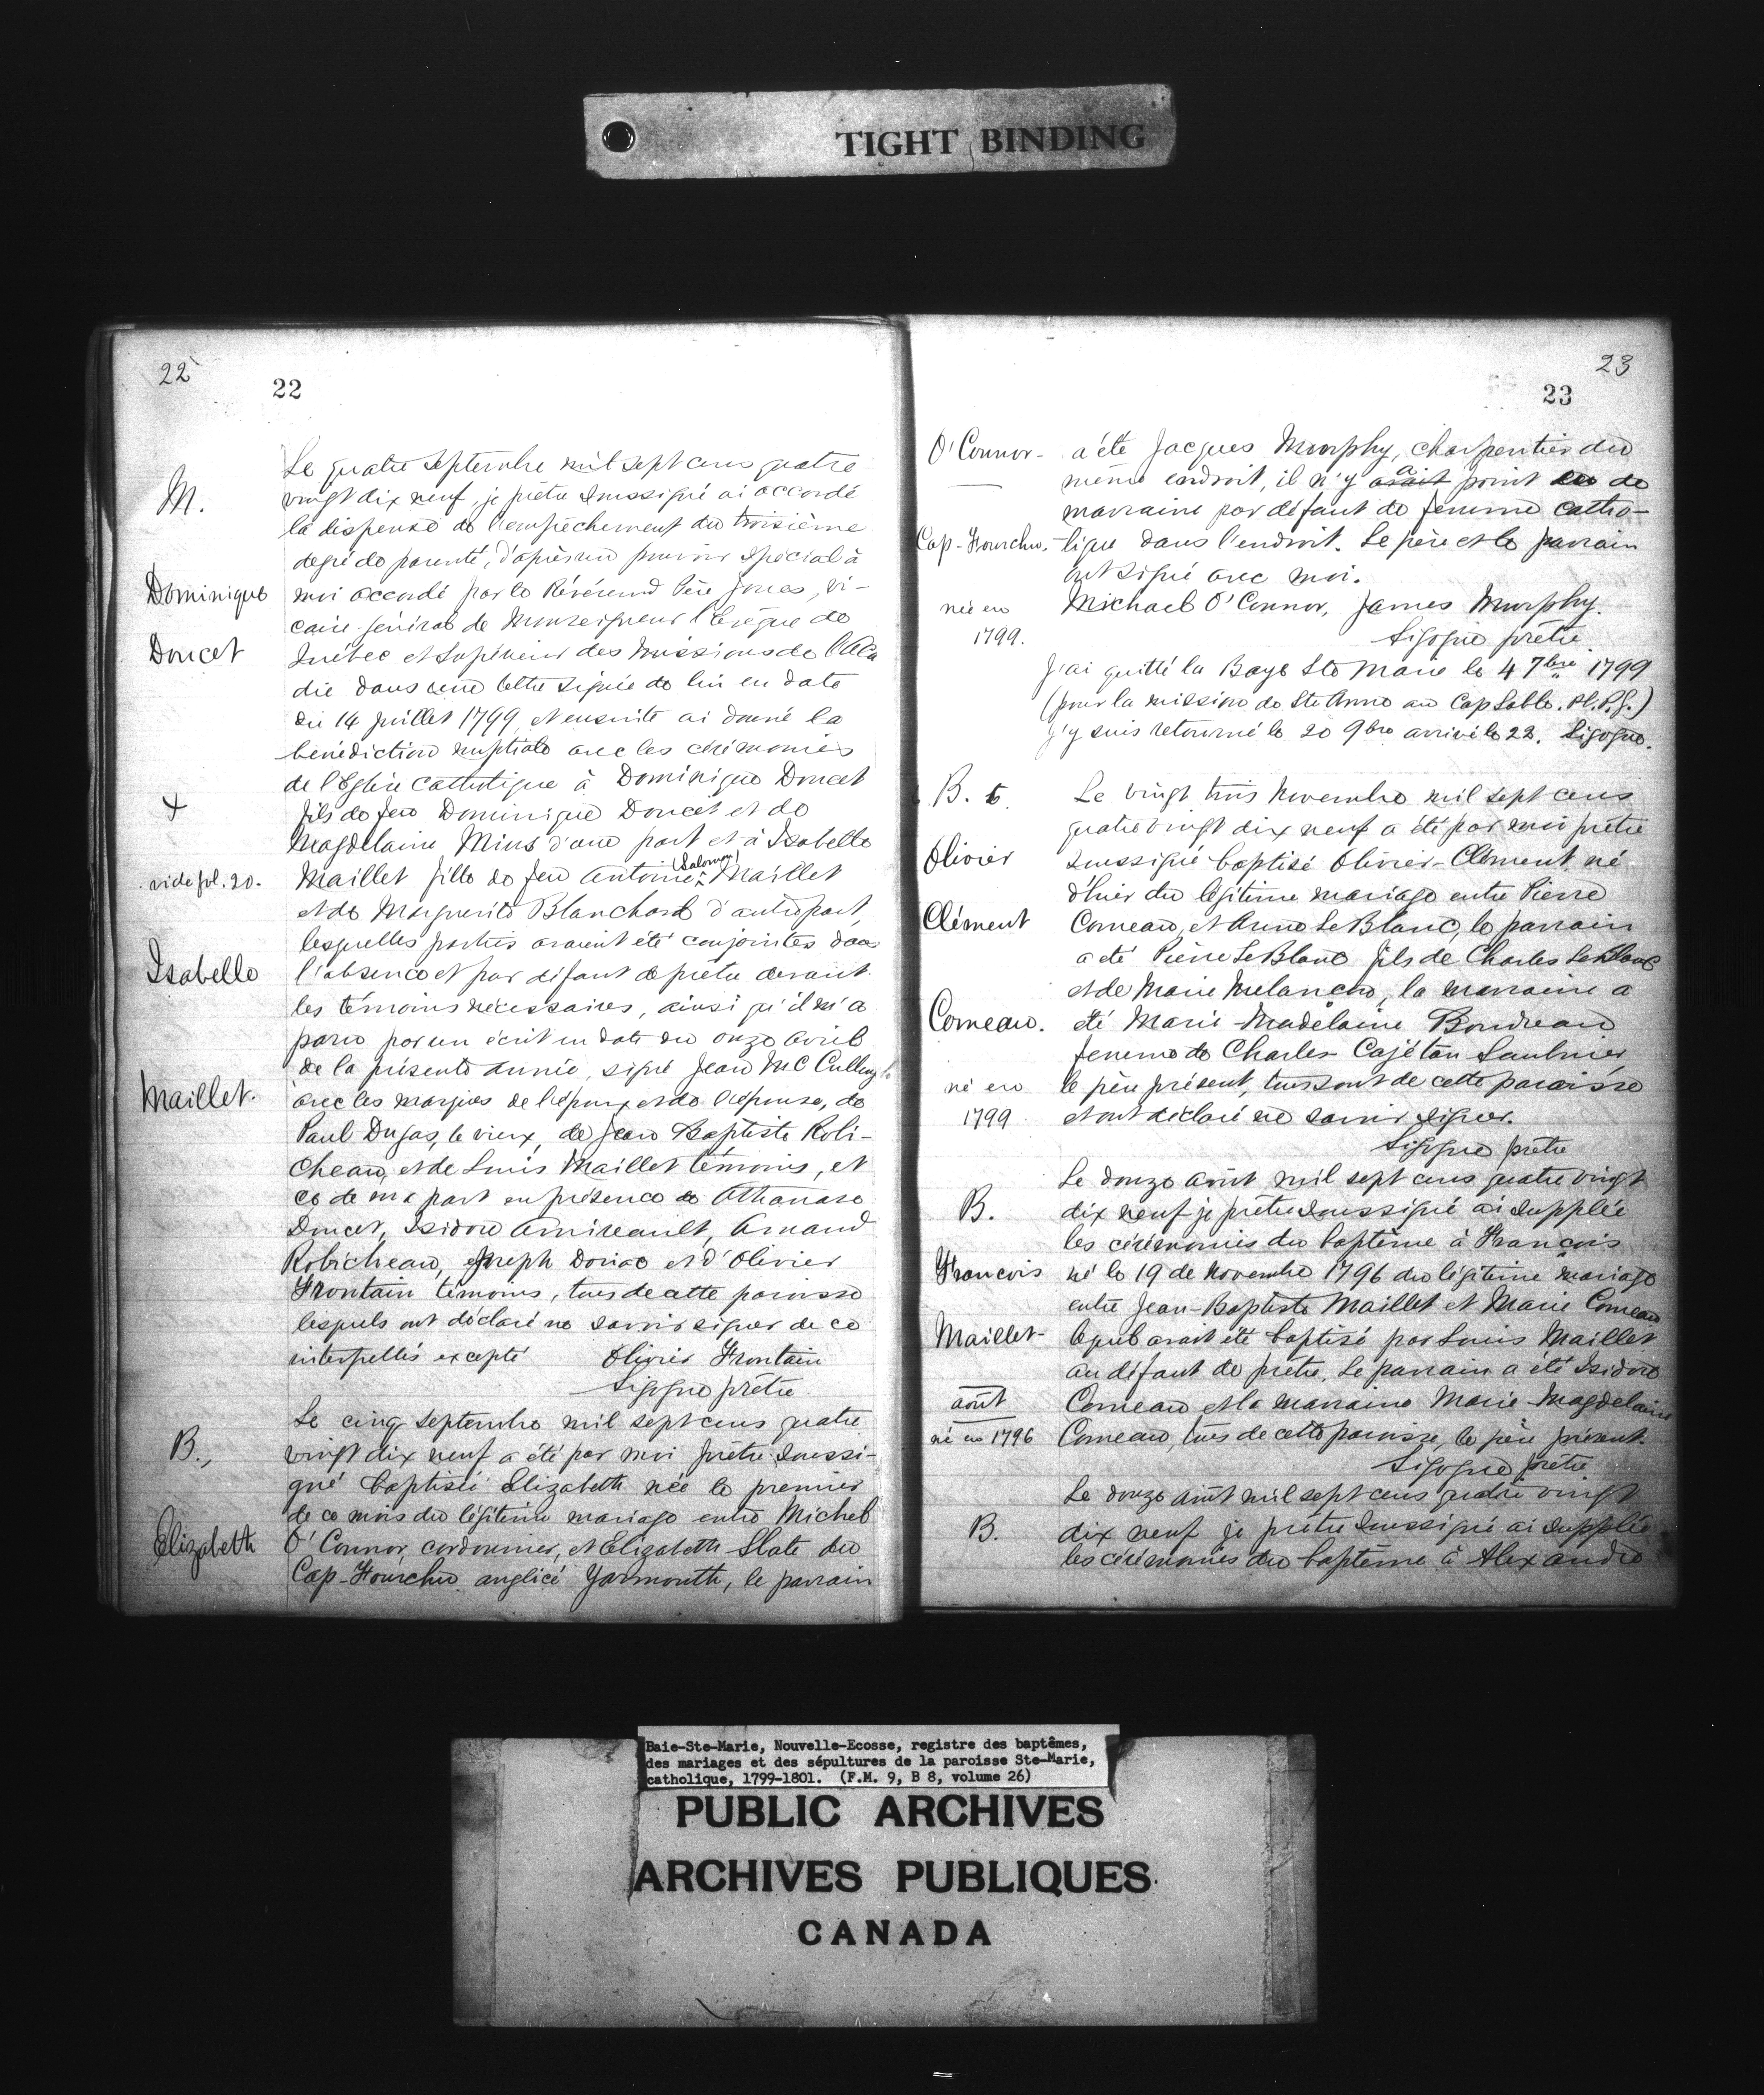 TIGHT BINDING
22
22
M.
Dominique
Doucet
+
vide fol. 20.
Isabelle
Maillet.
Le quatre septembre mil sept cens quatre
vingt dix neuf, je prêtre soussigné ai accordé
la dispense de l'empêchement du troisième
degré de parenté, d'après un pouvoir spécial à
moi accordé par le Révérend Père Jones, vi-
caire général de Monseigneur l'Evêque de
Québec et Supérieur des Missions de l'Aca
die dans une lettre signée de lui en date
du 14 Juillet 1799, et ensuite ai donné la
bénédiction nuptiale avec les cérémonies
de l'Eglise catholique à Dominique Doucet
fils de feu Dominique Doucet et de
Magdelaine Mius d'une part et à Isabelle
(Salomon)
Maillet fille de feu Antoine Maillet
et de Marguerite Blanchard d'autre part,
lesquelles parties avaient été conjointes dans
l'absence et par défaut de prêtre devant
les témoins nécessaires, ainsi qu'il m'a
paru par un écrit en date du onze avril
de la présente année, signé Jean McCullough
avec les marques de l'époux et de l'épouse, de
Paul Dugas, le vieux, de Jean Baptiste Robi-
cheau, et de Louis Maillet témoins, et
ce de ma part en présence de Athanase
Doucet, Isidore Amireault, Amand
Robicheau, Joseph Doriac et d'Olivier
Frontain témoins, tous de cette paroisse
lesquels ont déclaré ne savoir signer de ce
interpellés excepté Olivier Frontain
Sigogne prêtre
B.,
Elizabeth
Le cinq septembre mil sept cens quatre
vingt dix neuf a été par moi prêtre soussi-
gné baptisée Elizabeth née le premier
de ce mois du légitime mariage entre Michel
O'Connor, cordonnier, et Elizabeth Slate du
Cap-Fourchu anglicé Yarmouth, le parrain
23
23
O'Connor-
Cap-Fourchu.
née en
1799.
a été Jacques Murphy, charpentier du
a
même endroit, il n'y avait point eu de
marraine par défaut de femme catho-
lique dans l'endroit. Le père et le parrain
ont signé avec moi.
Michael O'Connor, James Murphy.
Sigogne prêtre.
J'ai quitté la Baye Ste Marie le 4 7bre 1799
(pour la mission de Ste Anne au Cap Sable. Pl. P. G.)
j'y suis retourné le 20 9bre arrivé le 22. Sigogne.
B. 6
Olivier
Clément
Comeau.
né en
1799
Le vingt trois Novembre mil sept cens
quatre vingt dix neuf a été par moi prêtre
soussigné baptisé Olivier-Clément né
d'hier du légitime mariage entre Pierre
Comeau, et Anne LeBlanc, le parrain
a été Pierre LeBlanc fils de Charles LeBlanc
et de Marie Melançon, la marraine a
été Marie-Madelaine Boudreau
femme de Charles Cajétan Saulnier
le père présent, tous sont de cette paroisse
et ont déclaré ne savoir signer.
Sigogne prêtre
B.
François
Maillet-
août
né en 1796
Le douze août mil sept cens quatre vingt
dix neuf je prêtre soussigné ai supplée
les cérémonies du baptême à François
né le 19 de Novembre 1796 du légitime mariage
entre Jean-Baptiste Maillet et Marie Comeau
lequel avait été baptisé par Louis Maillet
au défaut de prêtre. Le parrain a été Isidore
Comeau et la marraine Marie-Magdelaine
Comeau, tous de cette paroisse, le père présent.
Sigogne prêtre
B.
Le douze août mil sept cens quatre vingt
dix neuf je prêtre soussigné ai supplée
les cérémonies du baptême à Alexandre
Baie-Ste-Marie, Nouvelle-Ecosse, registre des baptêmes,
des mariages et des sépultures de la paroisse Ste-Marie,
catholique, 1799-1801. (F.M. 9, B 8, volume 26)
PUBLIC ARCHIVES
ARCHIVES PUBLIQUES
CANADA